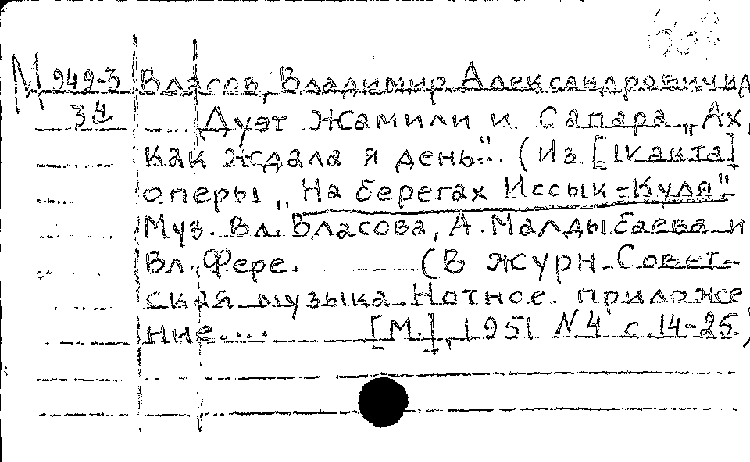 М 949-3 Власов, Владимир Александрович и д
34 Дуэт Жамили и Сапара „Ах,
как ждала я день“. (Из [IV акта]
оперы „На берегах Иссык-Куля“
Муз. Вл. Власова, А. Малдыбаева и
Вл. Фере. (В журн. Совет-
ская музыка Нотное приложе
ние.... [М.], 1951 N4 с. 14-25)